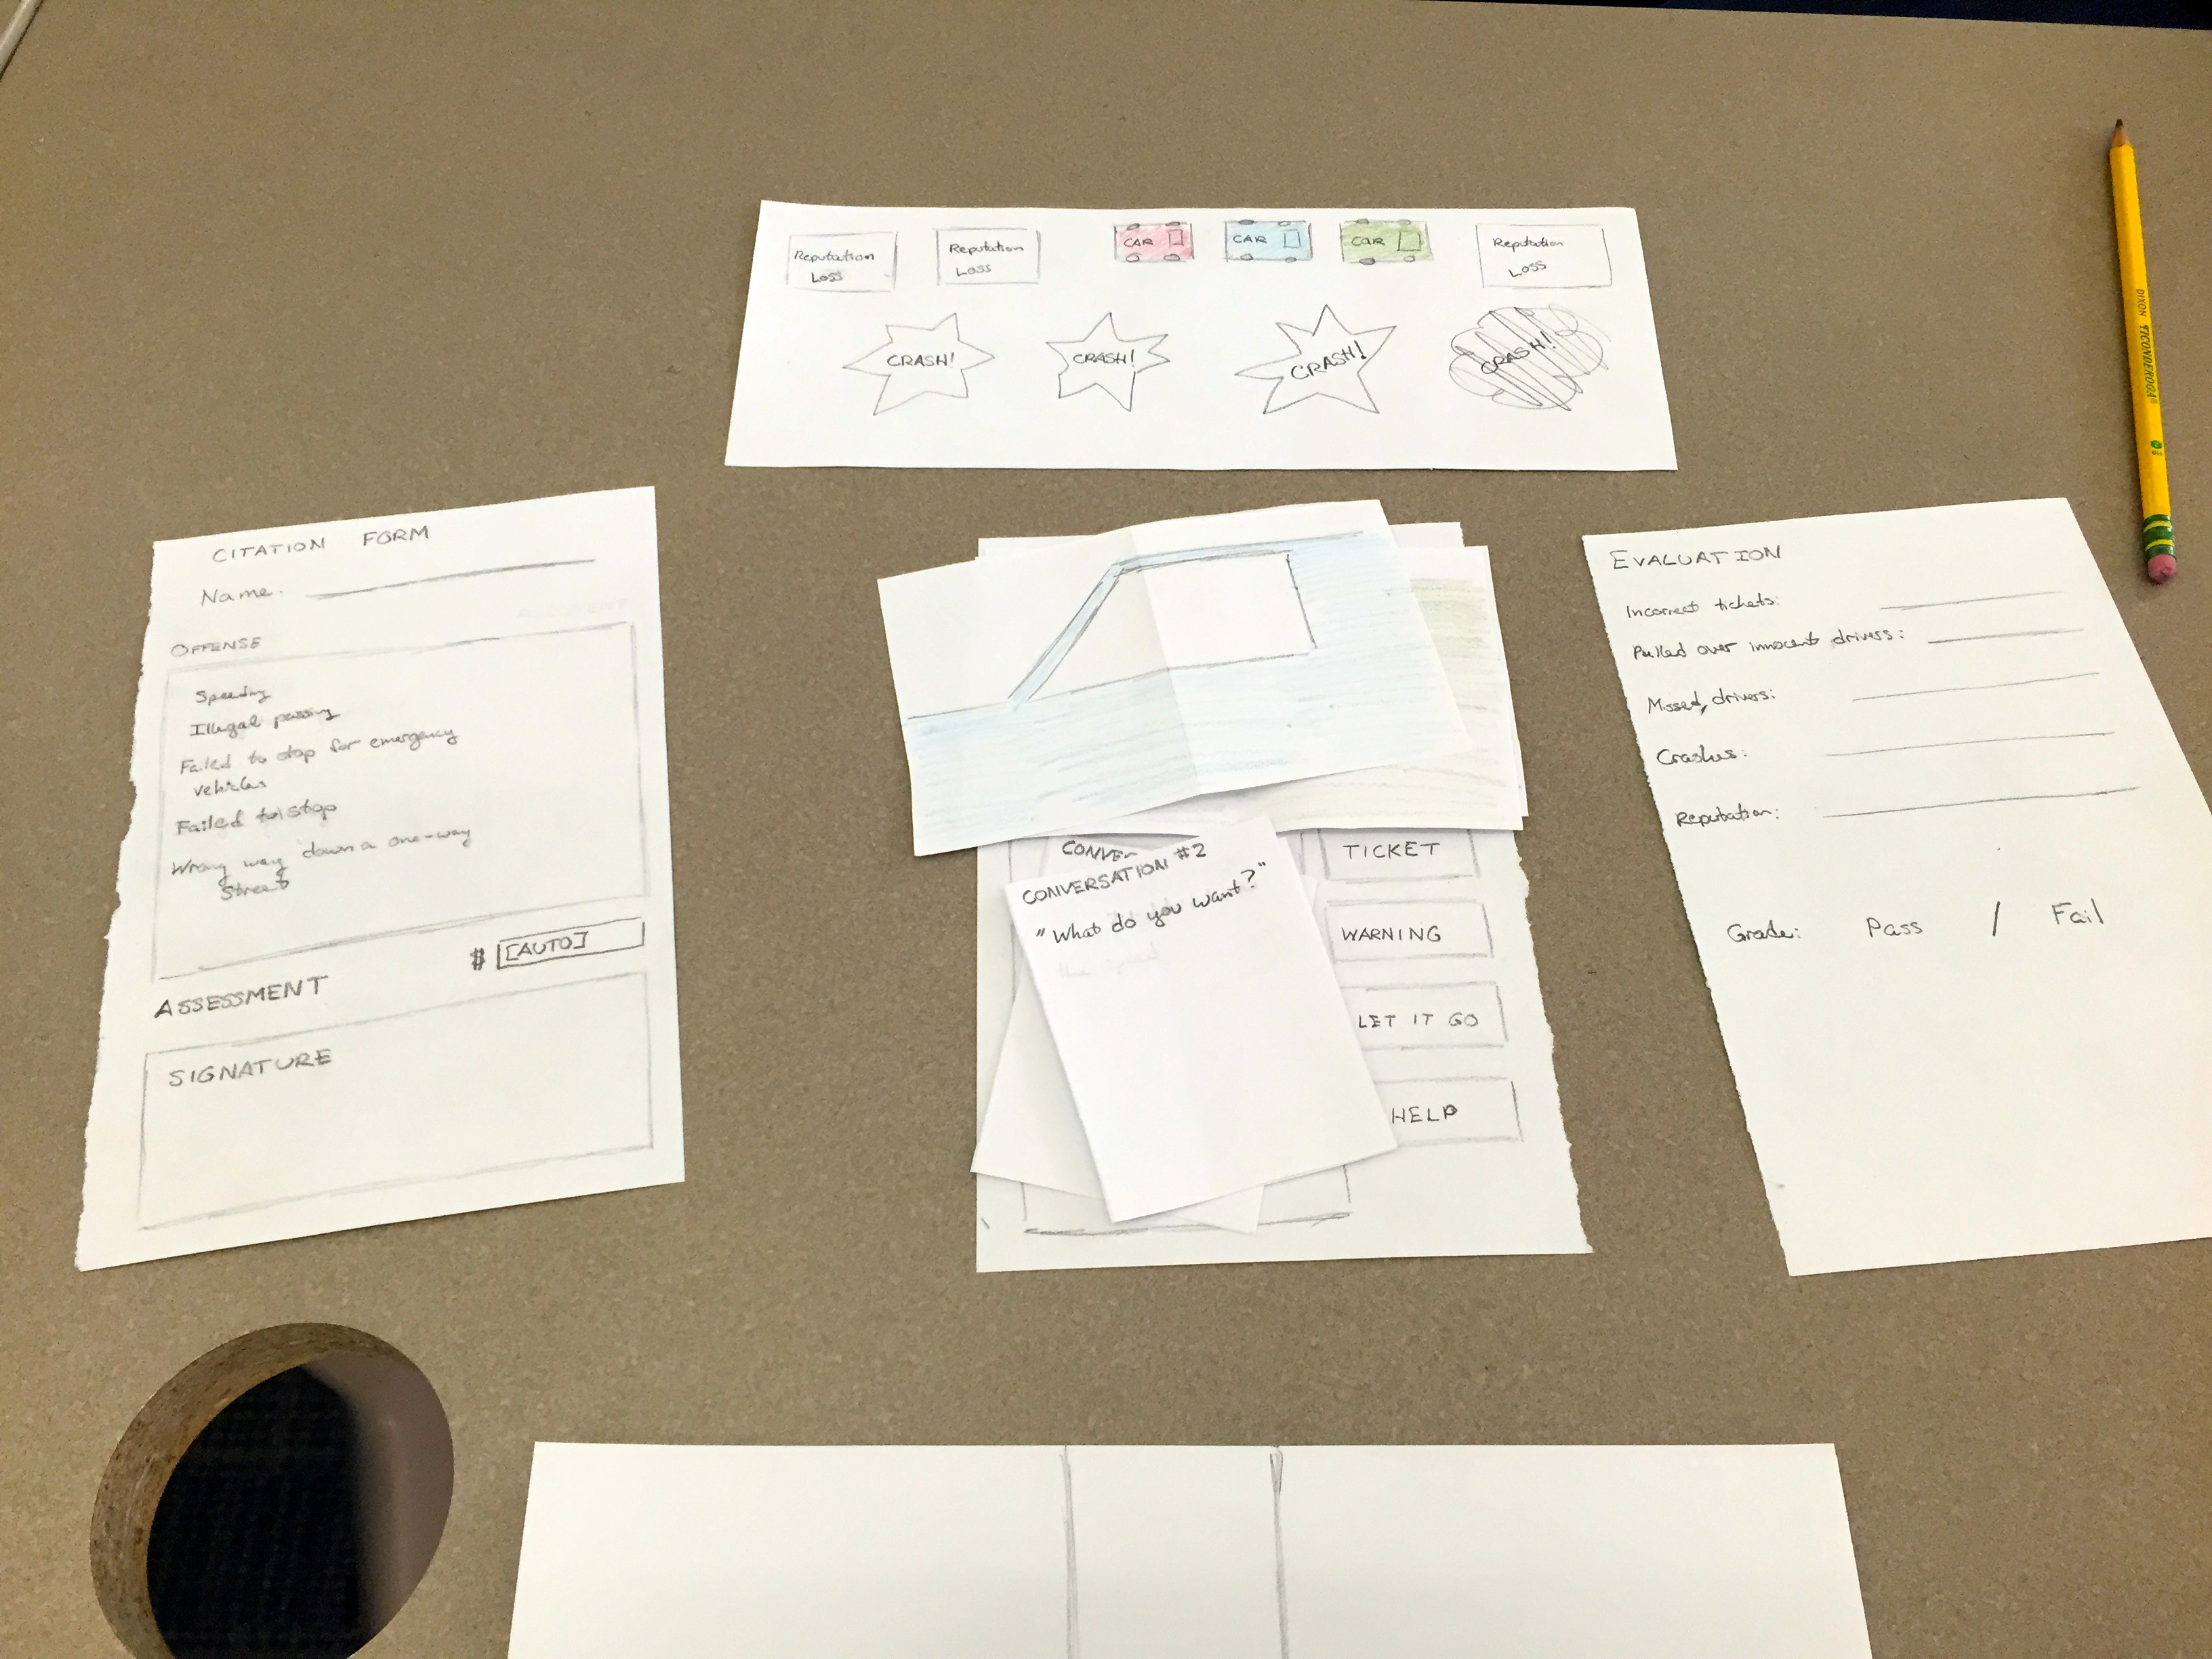 Reputation
Loss
Reputation
Loss
CAR
CAR
CAR
Reputation
Loss
CRASH!
CRASH!
CRASH!
CRASH!
DIXON TICONDEROGA
CITATION FORM
Name:
OFFENSE
Speeding
Illegal passing
Failed to stop for emergency
vehicles
Failed to stop
Wrong way down a one-way
Street
$ [AUTO]
ASSESSMENT
SIGNATURE
CONVE
CONVERSATION #2
"What do you want?"
TICKET
WARNING
LET IT GO
HELP
EVALUATION
Incorrect tickets:
Pulled over innocent drivers:
Missed, drivers:
Crashes:
Reputation:
Grade: Pass / Fail